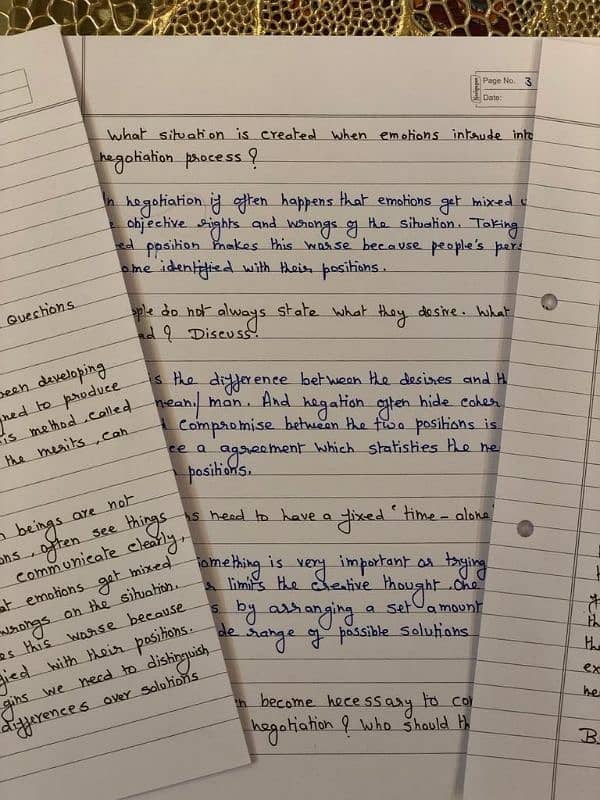 Page No. 3
Date:
What situation is created when emotions intrude into
negotiation process ?
In negotiation if often happens that emotions get mixed
objective rights and wrongs of the situation. Taking
position makes this worse because people's
identified with their positions.
do not always state what they desire. What
? Discuss.
is the difference between the desires and
mean/ man. And negation often hide
compromise between the two positions is
a agreement which statisties the
positions.
need to have a fixed "time - alone
something is very important or trying
limits the creative thought. One
by arranging a set amount
range of possible solutions
become necessary to
negotiation ? Who should
Questions
been developing
to produce
is method, called
the merits, can
beings are not
, often see things
communicate clearly,
emotions get mixed
wrongs on the situation.
this worse because
with their positions.
we need to distinguish
differences over solutions
B